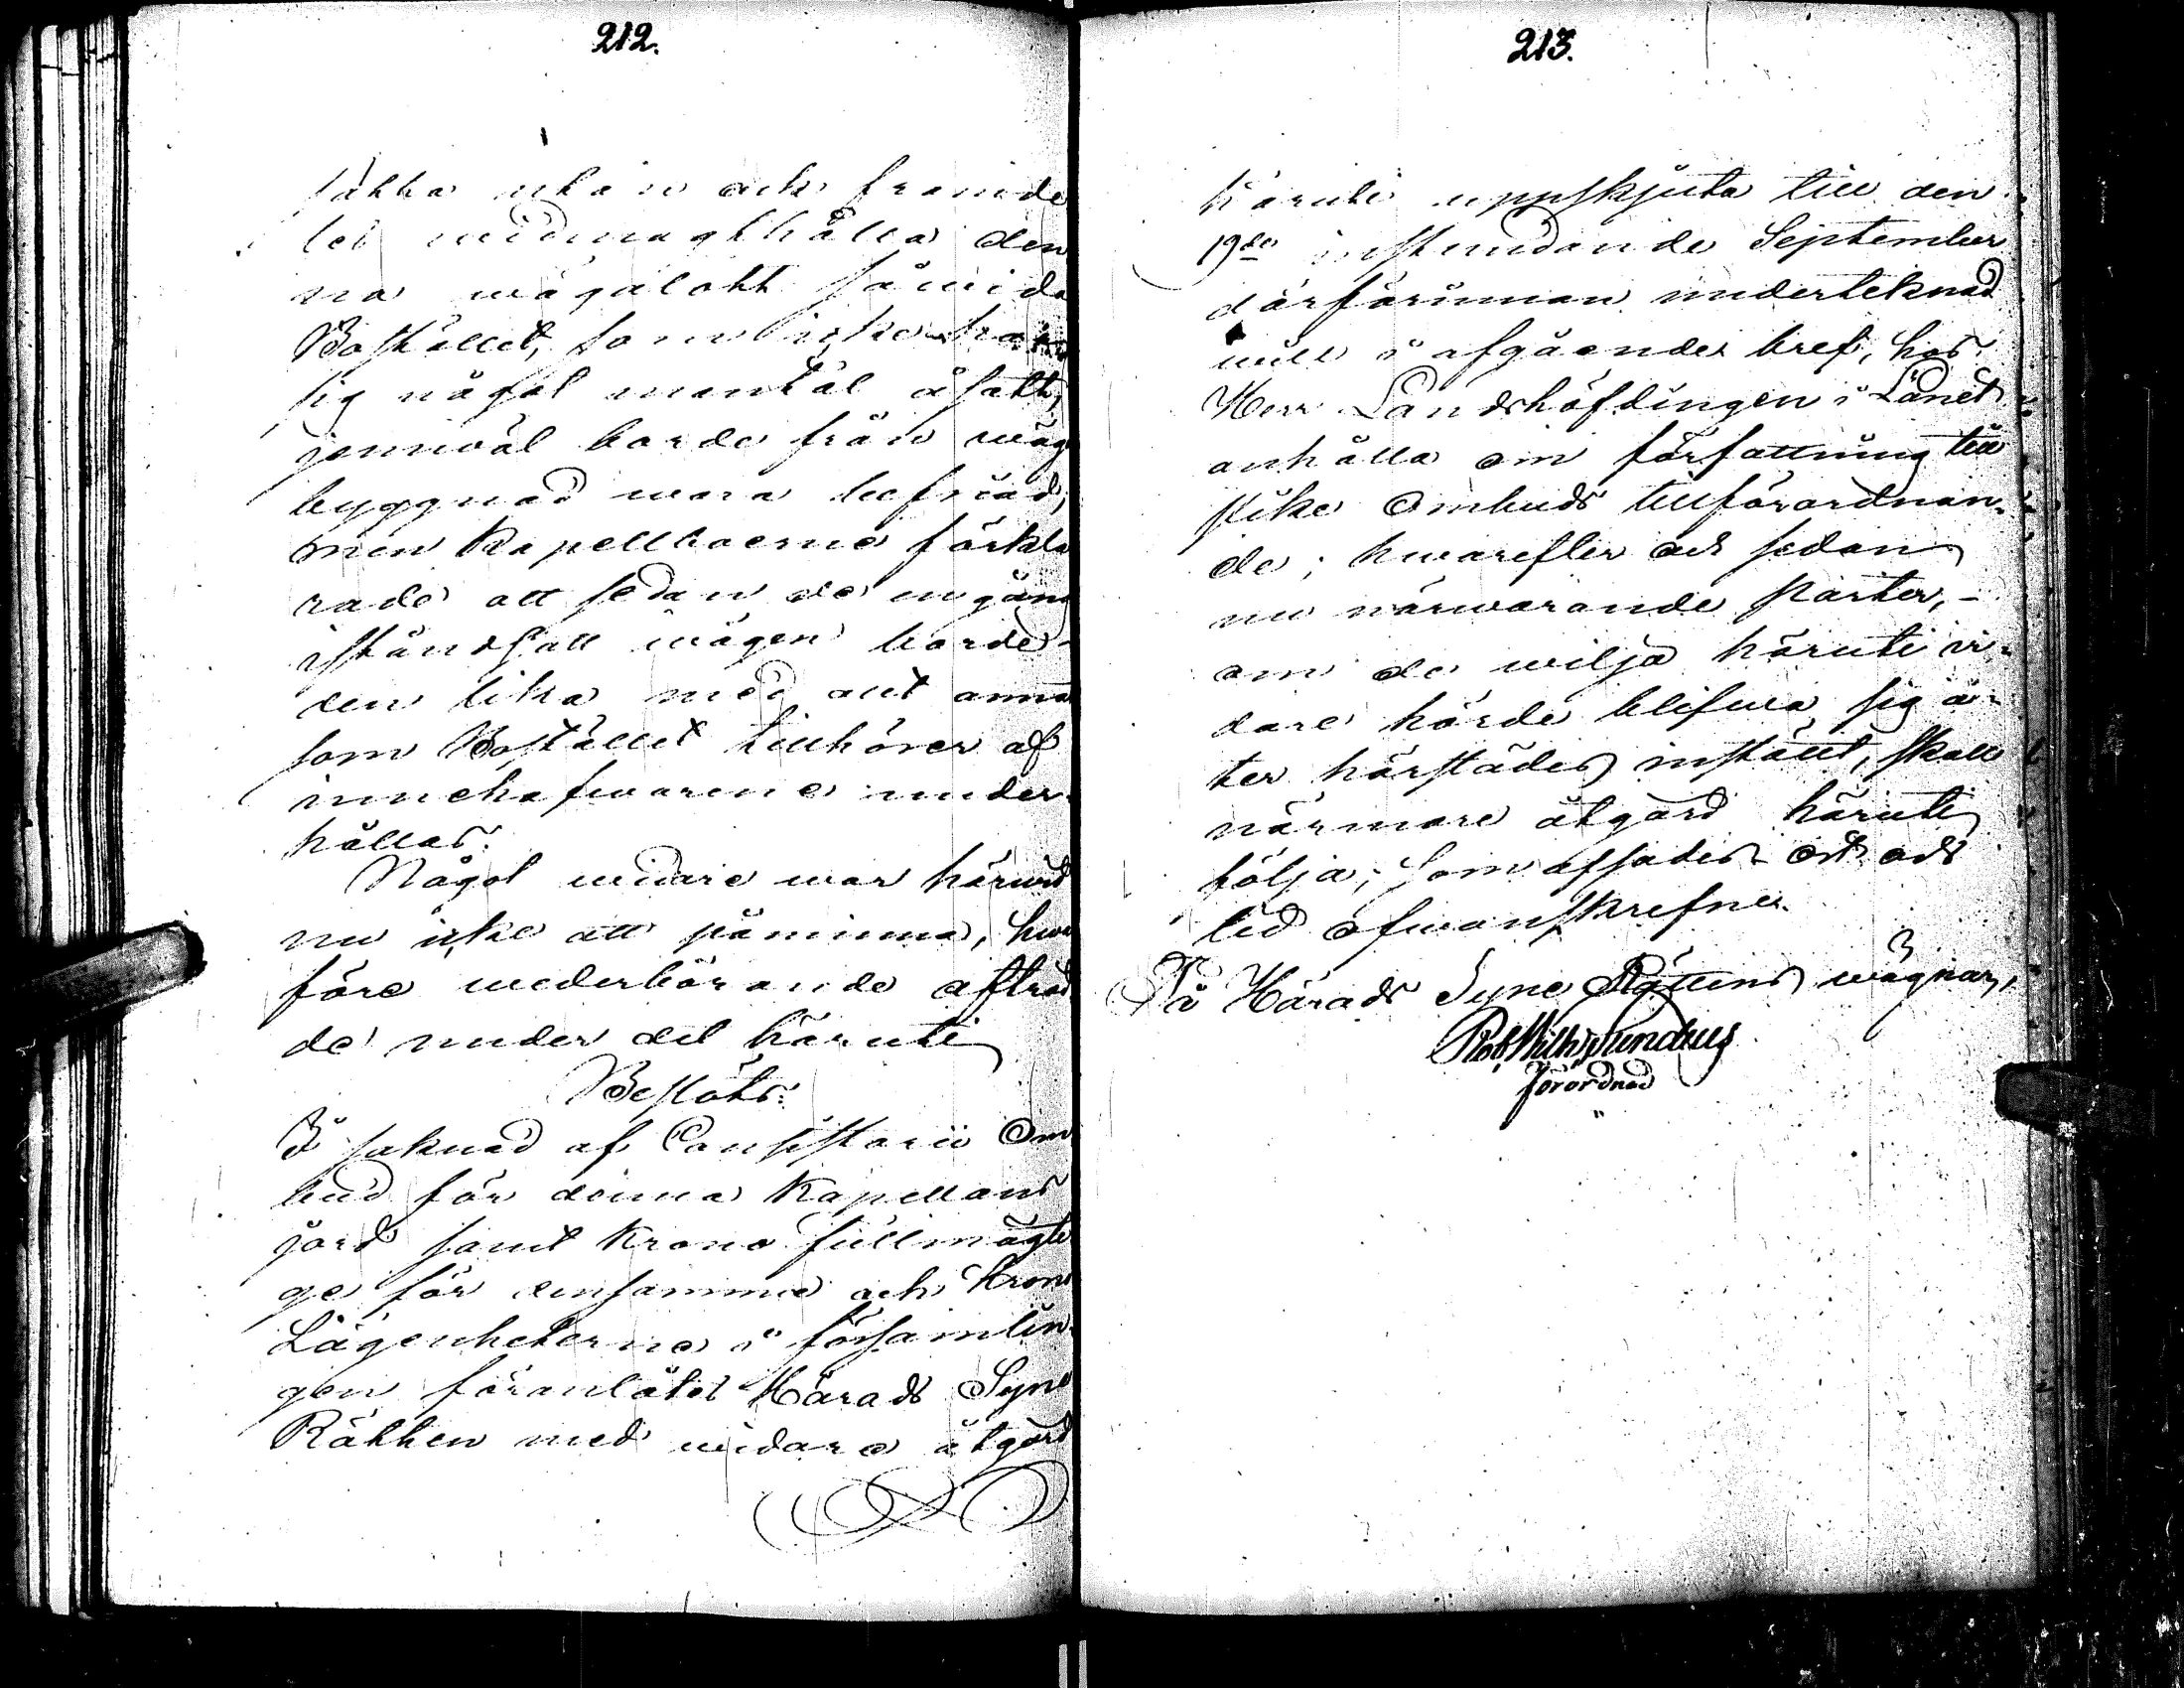 212.
sätta utan ock framde
les widmagthålla den
na wägalott såwida
Bostället, som icke har
sig något mantal åsatt,
jemwäl borde från wäg
byggnad wara befriad;
men Kapellboerne förkla
rade att sedan de en gång
iståndsatt wägen borde
den lika med alt annat
som Bostället tillhörer af
innehafwarene under
hållas.
Något widare war härwid
nu icke att påminna, hwar
före wederbörande afträd
de under det häruti
Beslöts:
I saknad af Consistorii Om
bud för denna Kapellans
jord samt Krono fullmägti
ge för densamme och Krono
Lägenheterne i församlin
gen föranlåtes Härads Syne
Rätten med widare åtgärd
213.
häruti uppskjuta till den
19de instundande September
därförinnan underteknad
will i afgående bref, hos
Herr Landshöfdingen i Länet
anhålla om författning till
slike Ombuds tillförordnan-
de; hwarefter och sedan
nu närwarande parter,
om de wilja häruti wi-
dare hörde blifwa sig å-
ter härstädes inställt, skall
närmare åtgärd häruti
följa; Som afsades Ort och
tid ofwanskrefne.
På Härads Syne Rättens wägnar,
Rob Wilh
förordnad